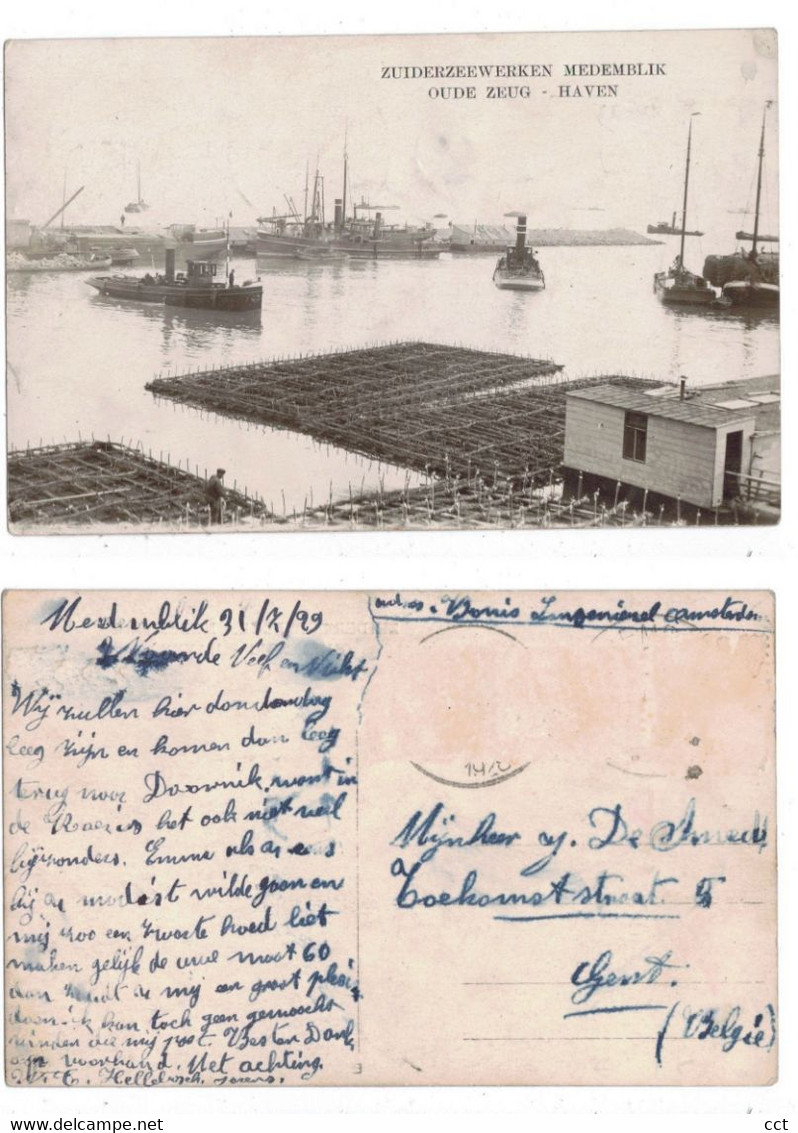 ZUIDERZEEWERKEN MEDEMBLIK
OUDE ZEUG - HAVEN
Medemblik 31/7/29
Waarde Veef en Nicht
Wij zullen hier donderdag
leeg zijn en komen dan leeg
terug naar Doornik, want in
de het ook niet veel
bijzonders. Emma als ge eens
bij de modist wilde gaan en
mij zoo een zwarte hoed liet
maken gelijk de uwe maat 60
dan doet ge mij een groot plezir
want ik kan toch geen gemaakte
vinden die mij past. Besten Dank
op voorhand. Met achting.
adres. Bonis Amsterdam
Mijnheer J. De Smedt
Toekomststraat 5
Gent.
(België)
cct